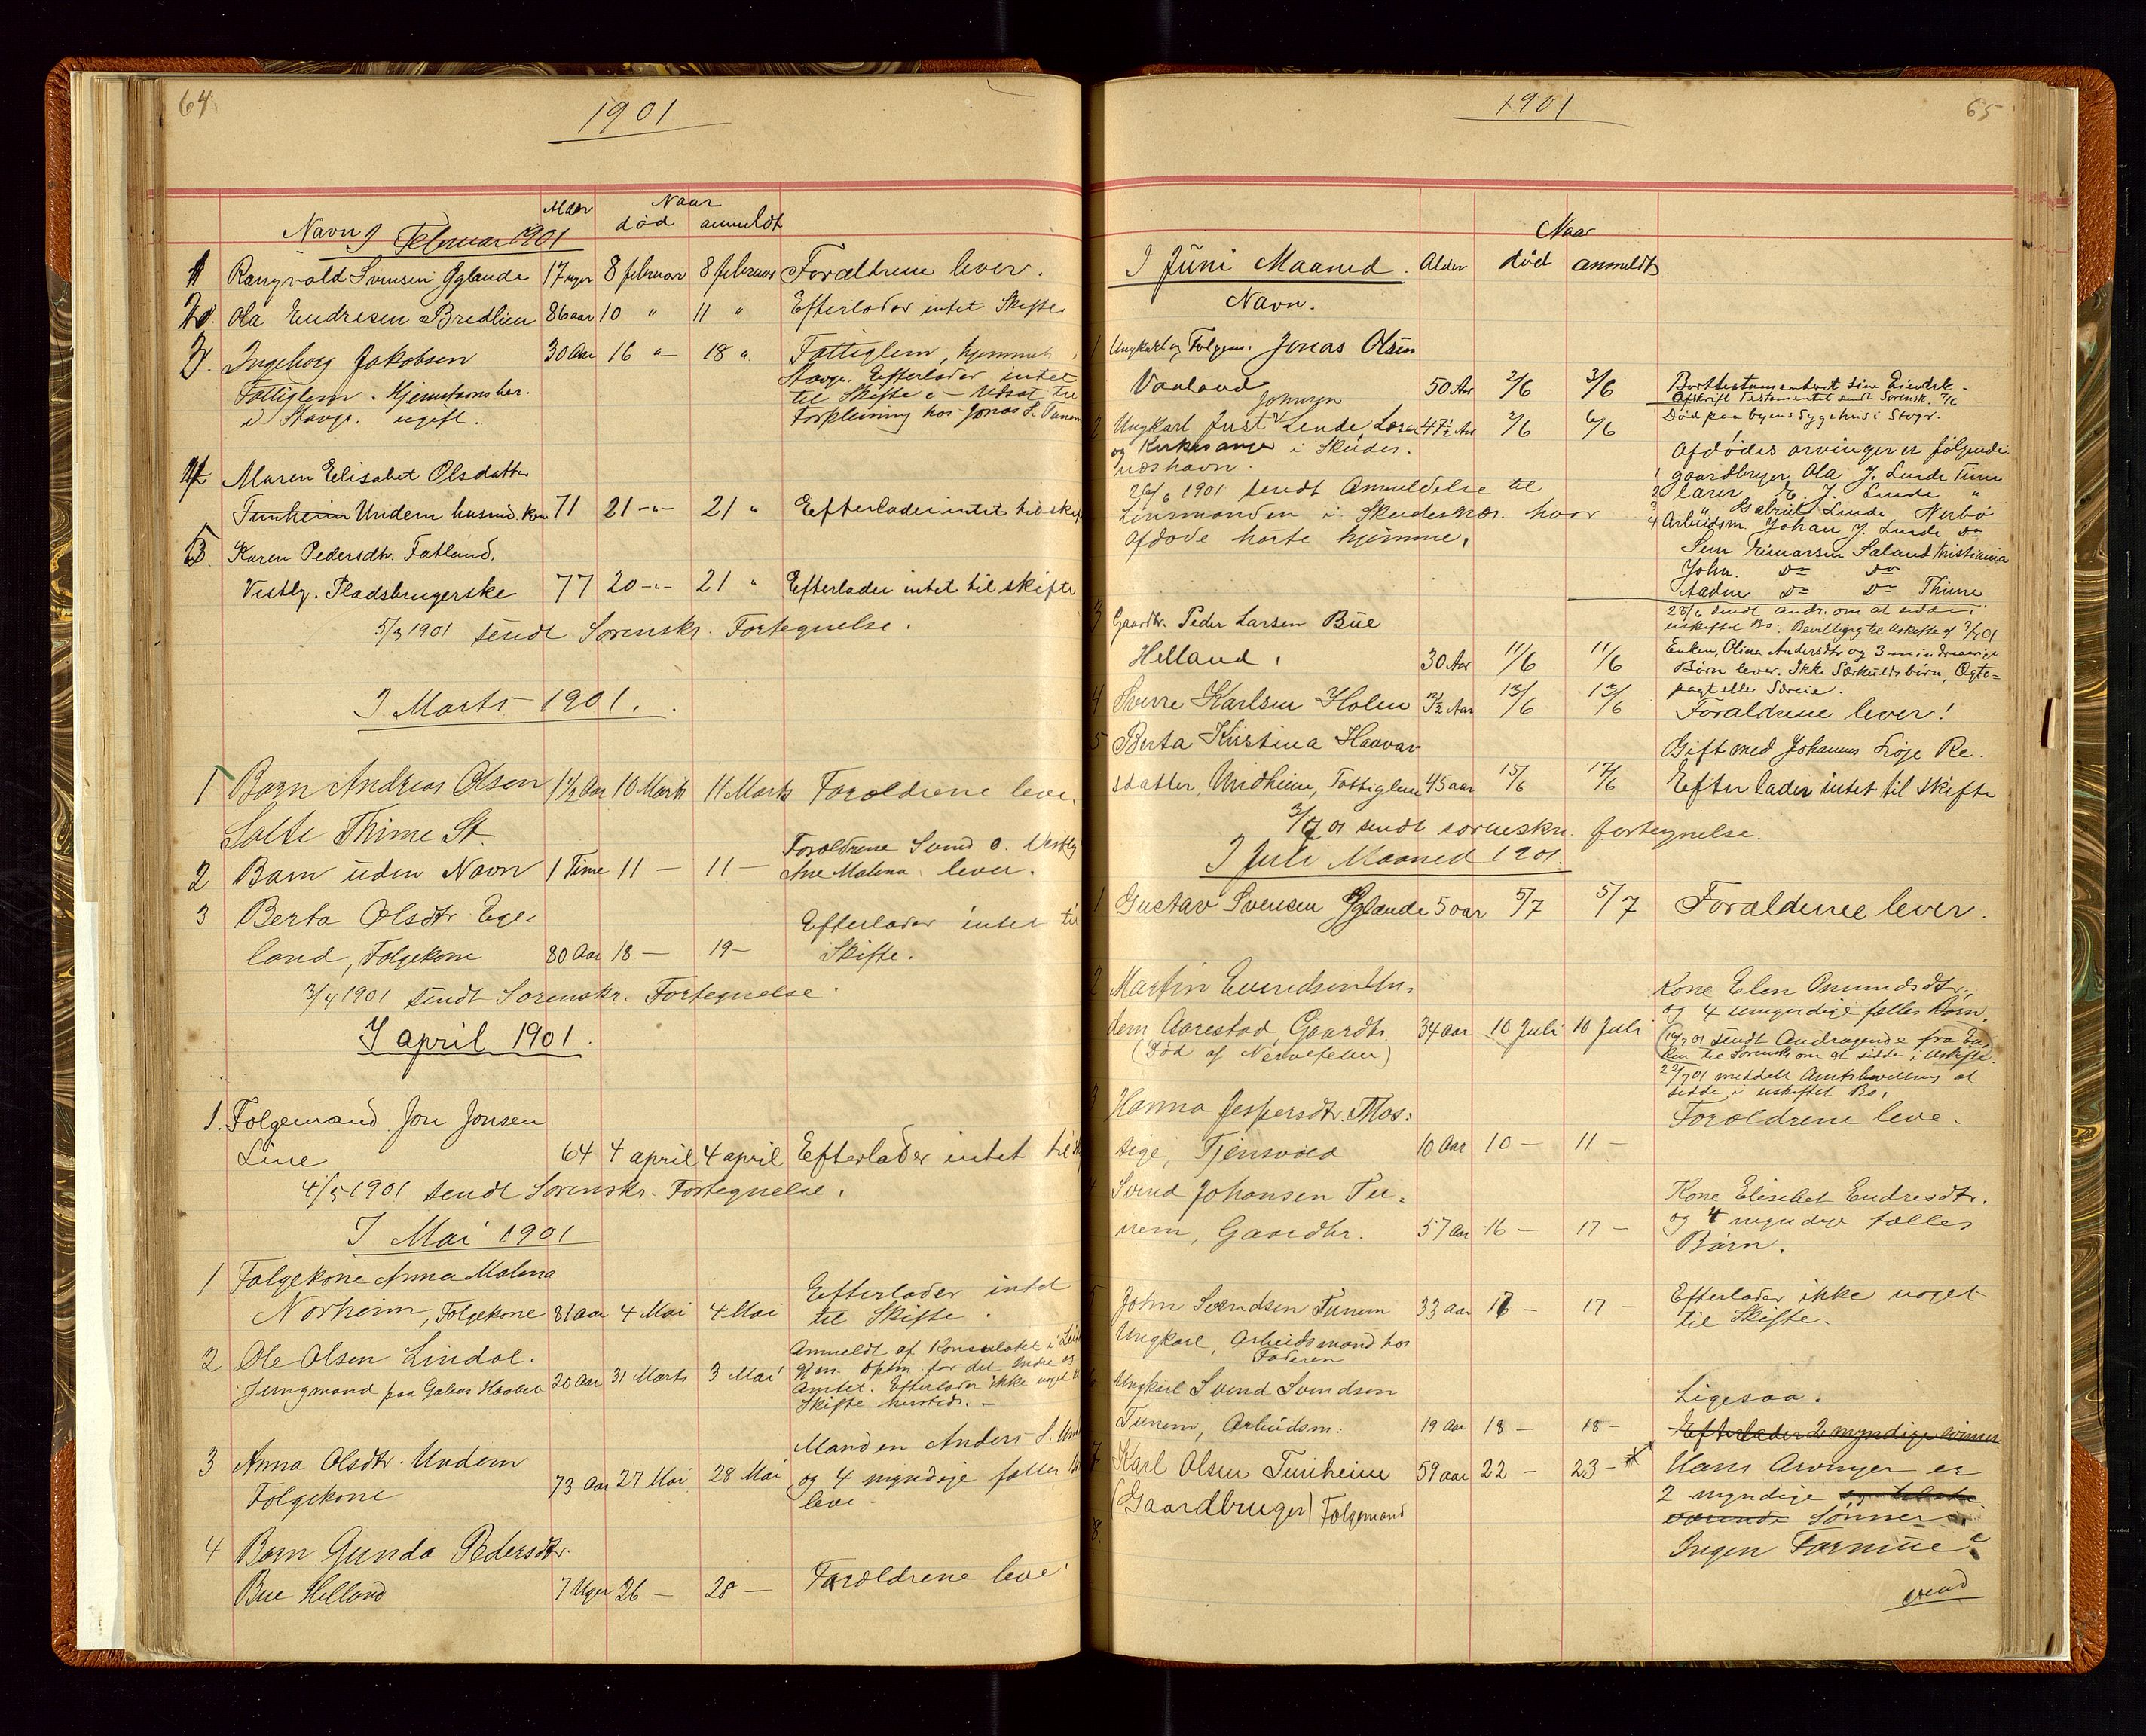 64
1901
Alder Naar
Navn I Februar 1901 død anmeldt
1 Rangvald Svensen Øglænde 17 uger 8 februar 8 februar Forældrene lever.
2 Ola Endresen Bredlien 86 aar 10 " 11 " Efterlader intet Skifte
3. Ingeborg Jakobsen 30 Aar 16 "- 18 " Fattiglem, hjemmeh
Fattiglem. Hjemstavnsber. Stavgr. Efterlader intet
i Stavgr. ugift. til Skifte - Udsat til
Forpleining hos Jonas S. Tunem
4 Maren Elisabet Olsdatter
Tunheim Undem husmd. Kone 71 21 -"- 21 " Efterlader intet til skif
5. Karen Pedersdtr. Fatland,
Vestly. Pladsbrugerske 77 20 -"- 21 " Efterlader intet til skifte
5/3 1901 sendt Sorenskr. Fortegnelse.
I Marts 1901.
1 Barn Andreas Olsen 1 1/2 Aar 10 Marts 11 Marts Forældrene leve.
Salte Thime St.
2 Barn uden Navn 1 Time 11 - 11 - Forældrene Svend O. Vestly
Ane Malena lever.
3 Berta Olsdtr Ege-
land, Følgekone 80 Aar 18 - 19 - Efterlader intet til
Skifte.
3/4 1901 sendt Sorenskr. Fortegnelse.
I april 1901.
1. Følgemand Jon Jonsen
Line 64 4 april 4 april Efterlader intet til sk
4/5 1901 sendt Sorenskr. Fortegnelse.
I Mai 1901
1 Følgekone Anna Malena
Norheim, Følgekone 81 aar 4 Mai 4 Mai Efterlader intet
til Skifte.
2 Ole Olsen Lindal.
Jungmand paa Galeas Haabet 20 Aar 31 Marts 3 Mai Anmeldt af Konsulatet i
gjen. Dptm for det Indre og
Amtet. Efterlader ikke noget
Skifte hersteds. -
3 Anna Olsdtr. Undem
Følgekone 73 Aar 27 Mai 28 Mai Manden Anders S. Und
og 4 myndige fælles
leve.
4 Barn Gunda Pedersdtr.
Bue Helland 7 Uger 26 - 28 - Forældrene leve
1901
65
Naar
I Juni Maaned. Alder død anmeldt
Navn.
1 Ungkarl og Følgem. Jonas Olsen
Varland 50 Aar 2/6 3/6 Borttestamenteret sine Eiendele -
Afskrift Testamentet sendt Sorensk. 7/6
Johnsen
2 Ungkarl Just Lende, Lærer 47 1/2 Aar 2/6 6/6 Død paa byens Sygehus i Stvgr.
og Kirkesanger i Skudes-
næshavn.
Afdødes arvinger er følgende
1 gaardbruger Ola J. Lende Time
2 lærer E. J. Lende "
3 " Gabriel Lende Nerbø
4 Arbeidsm. Johan J. Lende do
26/6 1901 sendt Anmeldelse til
Lensmanden i Skudesnes. hvor
afdøde hørte hjemme.
Sem Einarsen Saland Kristiania
John. do do
Aadne do do Thime
28/6 sendt andr. om at sidde i
uskiftet Bo. Bevilling til Uskifte af 3/7 01
3 Gaardbr. Peder Larsen Bue
Helland. 30 Aar 11/6 11/6 Enken, Olina Andersdtr og 3 mindreaarige
Børn lever. Ikke Særkuldsbørn, Ægte-
pagt eller Særeie.
4 Sverre Karlsen Holen 3 1/2 Aar 13/6 13/6 Forældrene lever!
5 Berta Kristina Haavar
sdatter, Undheim, Fattiglem 45 aar 15/6 17/6 Gift med Johannes Sløje Re.
Efterlader intet til skifte
3/7 01 sendt sorenskr. fortegnelse.
I Juli Maaned 1901.
1 Gustav Svensen Øglænde 5 aar 5/7 5/7 Forældrene lever.
2 Martin Evendsen Un-
dem Aarestad, Gaardbr. 34 aar 10 Juli 10 Juli
(Død af Nervefeber)
Kone Elen Omundsdtr.
og 4 umyndige fælles Børn.
(10/7 01 sendt Andragende fra En-
ken til Sorensk om at sidde i Uskifte.
22/7 01 meddelt Amtsbevilling at
sidde i uskiftet Bo.
3 Hanna Jespersdtr. Mos-
sige, Tjensvold 10 Aar 10 - 11 - Forældrene leve.
4 Svend Johansen Tu-
nem, Gaardbr. 57 Aar 16 - 17 - Kone Elisebet Endresdtr.
og 4 myndige fælles
Børn.
5 John Svendsen Tunem 33 aar 17 - 17 - Efterlader ikke noget
til Skifte.
Ungkarl, Arbeidsmand hos
Faderen
6 Ungkarl Svend Svendsen
Tunem, Arbeidsm. 19 Aar 18 - 18 - Ligesaa.
Efterlader 2 myndige sønner
7 Karl Olsen Tunheim 59 aar 22 - 23 - Hans Arvinger er
(Gaardbruger) Følgemand 2 myndige
Sønner.
8. Ingen Formue.
vend